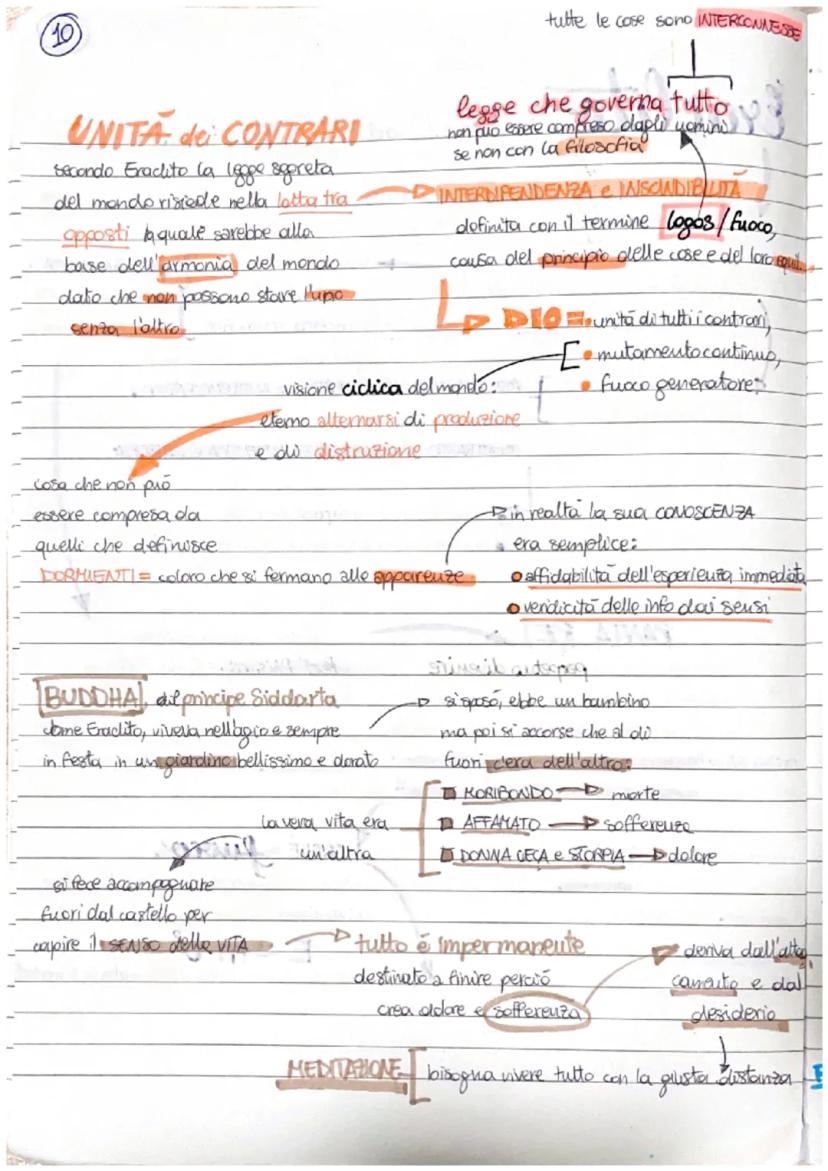 10
tutte le cose sono INTERCONNESSE
legge che governa tutto
non può essere compreso dagli uomini
se non con la filosofia
UNITÀ dei CONTRARI
secondo Eraclito la legge segreta
del mondo risiede nella lotta tra
opposti la quale sarebbe alla
base dell'armonia del mondo
dato che non possono stare l'uno
senza l'altro
INTERDIPENDENZA e INSCINDIBILITÀ
definita con il termine logos/fuoco,
causa del principio delle cose e del loro equil.
DIO = unità di tutti i contrari,
mutamento continuo,
fuoco generatore
visione ciclica del mondo:
eterno alternarsi di produzione
e di distruzione
cosa che non può
essere compresa da
quelli che definisce
DORMIENTI = coloro che si fermano alle apparenze
in realtà la sua CONOSCENZA
era semplice:
affidabilità dell'esperienza immediata
veridicità delle info dai sensi
BUDDHA, il principe Siddarta
come Eraclito, viveva nell'agio e sempre
in festa in un giardino bellissimo e dorato
si sposò, ebbe un bambino
ma poi si accorse che al di
fuori c'era dell'altro:
MORIBONDO morte
AFFAMATO sofferenza
DONNA CECA e STORPIA dolore
la vera vita era
un'altra
si fece accompagnare
fuori dal castello per
capire il SENSO della VITA
tutto è impermanente
destinato a finire perciò
crea dolore e sofferenza
deriva dall'atta
camento e dal
desiderio
MEDITAZIONE bisogna vivere tutto con la giusta distanza